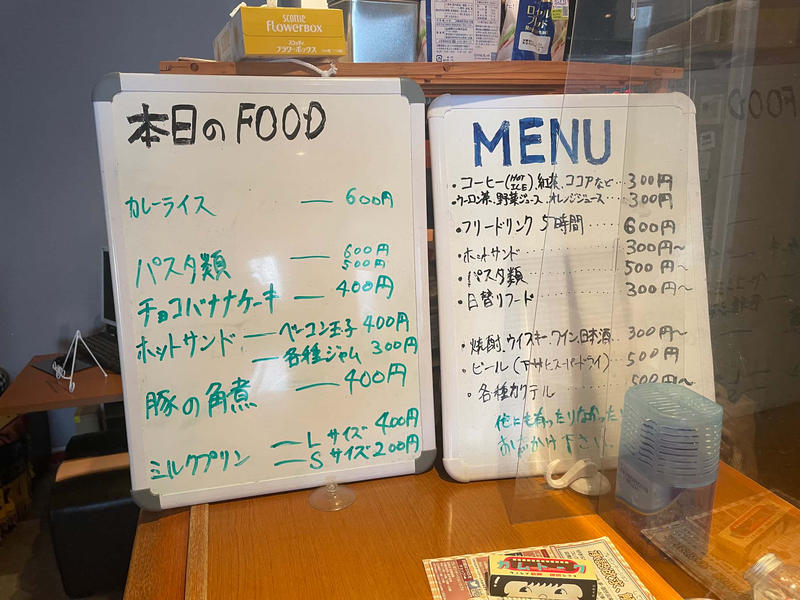 scottie
FLOWERBOX
スコッティ
フラワーボックス
本日のFOOD
カレーライス — 600円
パスタ類 — 600円
500円
チョコバナナケーキ — 400円
ホットサンド — ベーコン玉子 400円
— 各種ジャム 300円
豚の角煮 — 400円
ミルクプリン — Lサイズ 400円
— Sサイズ 200円
MENU
・コーヒー(HOT ICE)、紅茶、ココアなど… 300円
・ウーロン茶、野菜ジュース、オレンジジュース…… 300円
・フリードリンク 5時間 …… 600円
・ホットサンド …… 300円~
・パスタ類 …… 500円~
・日替りフード …… 300円~
・焼酎、ウイスキー、ワイン、日本酒… 300円~
・ビール(アサヒスーパードライ) 500円
・各種カクテル …… 500円~
他にも有ったりなかったり
お声がけ下さい。
FOOD